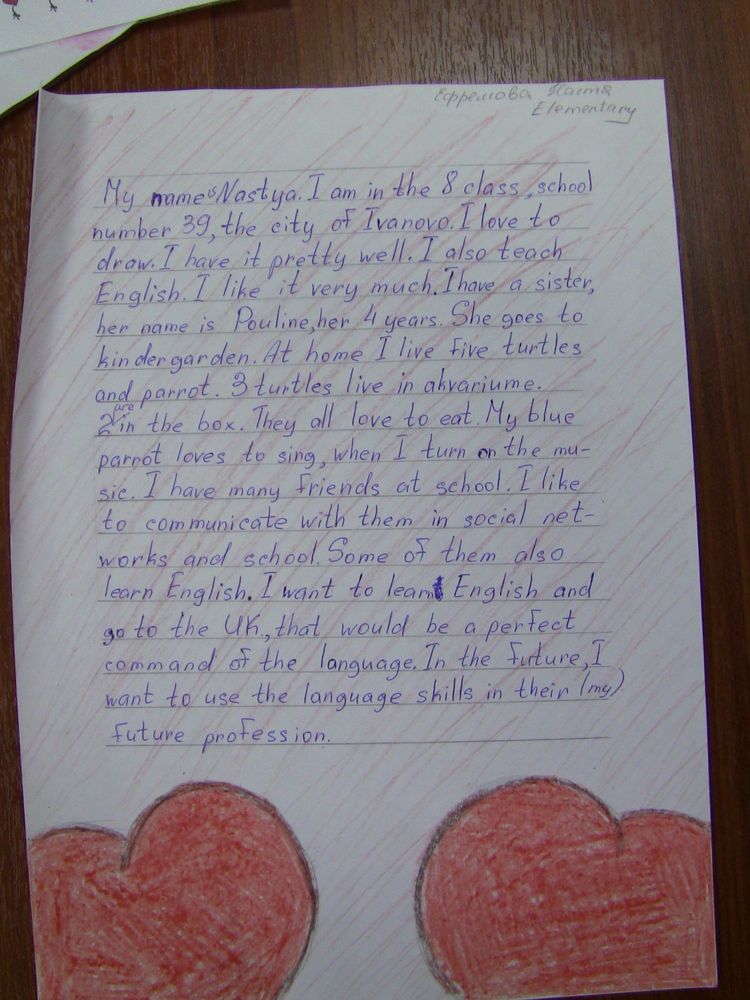 Ефремова Настя
Elementary
My name is Nastya. I am in the 8 class, school
number 39, the city of Ivanovo. I love to
draw. I have it pretty well. I also teach
English. I like it very much. I have a sister,
her name is Pouline, her 4 years. She goes to
kindergarden. At home I live five turtles
and parrot. 3 turtles live in akvariume.
2 are in the box. They all love to eat. My blue
parrot loves to sing, when I turn on the mu-
sic. I have many friends at school. I like
to communicate with them in social net-
works and school. Some of them also
learn English. I want to learn English and
go to the UK., that would be a perfect
command of the language. In the future, I
want to use the language skills in their (my)
future profession.